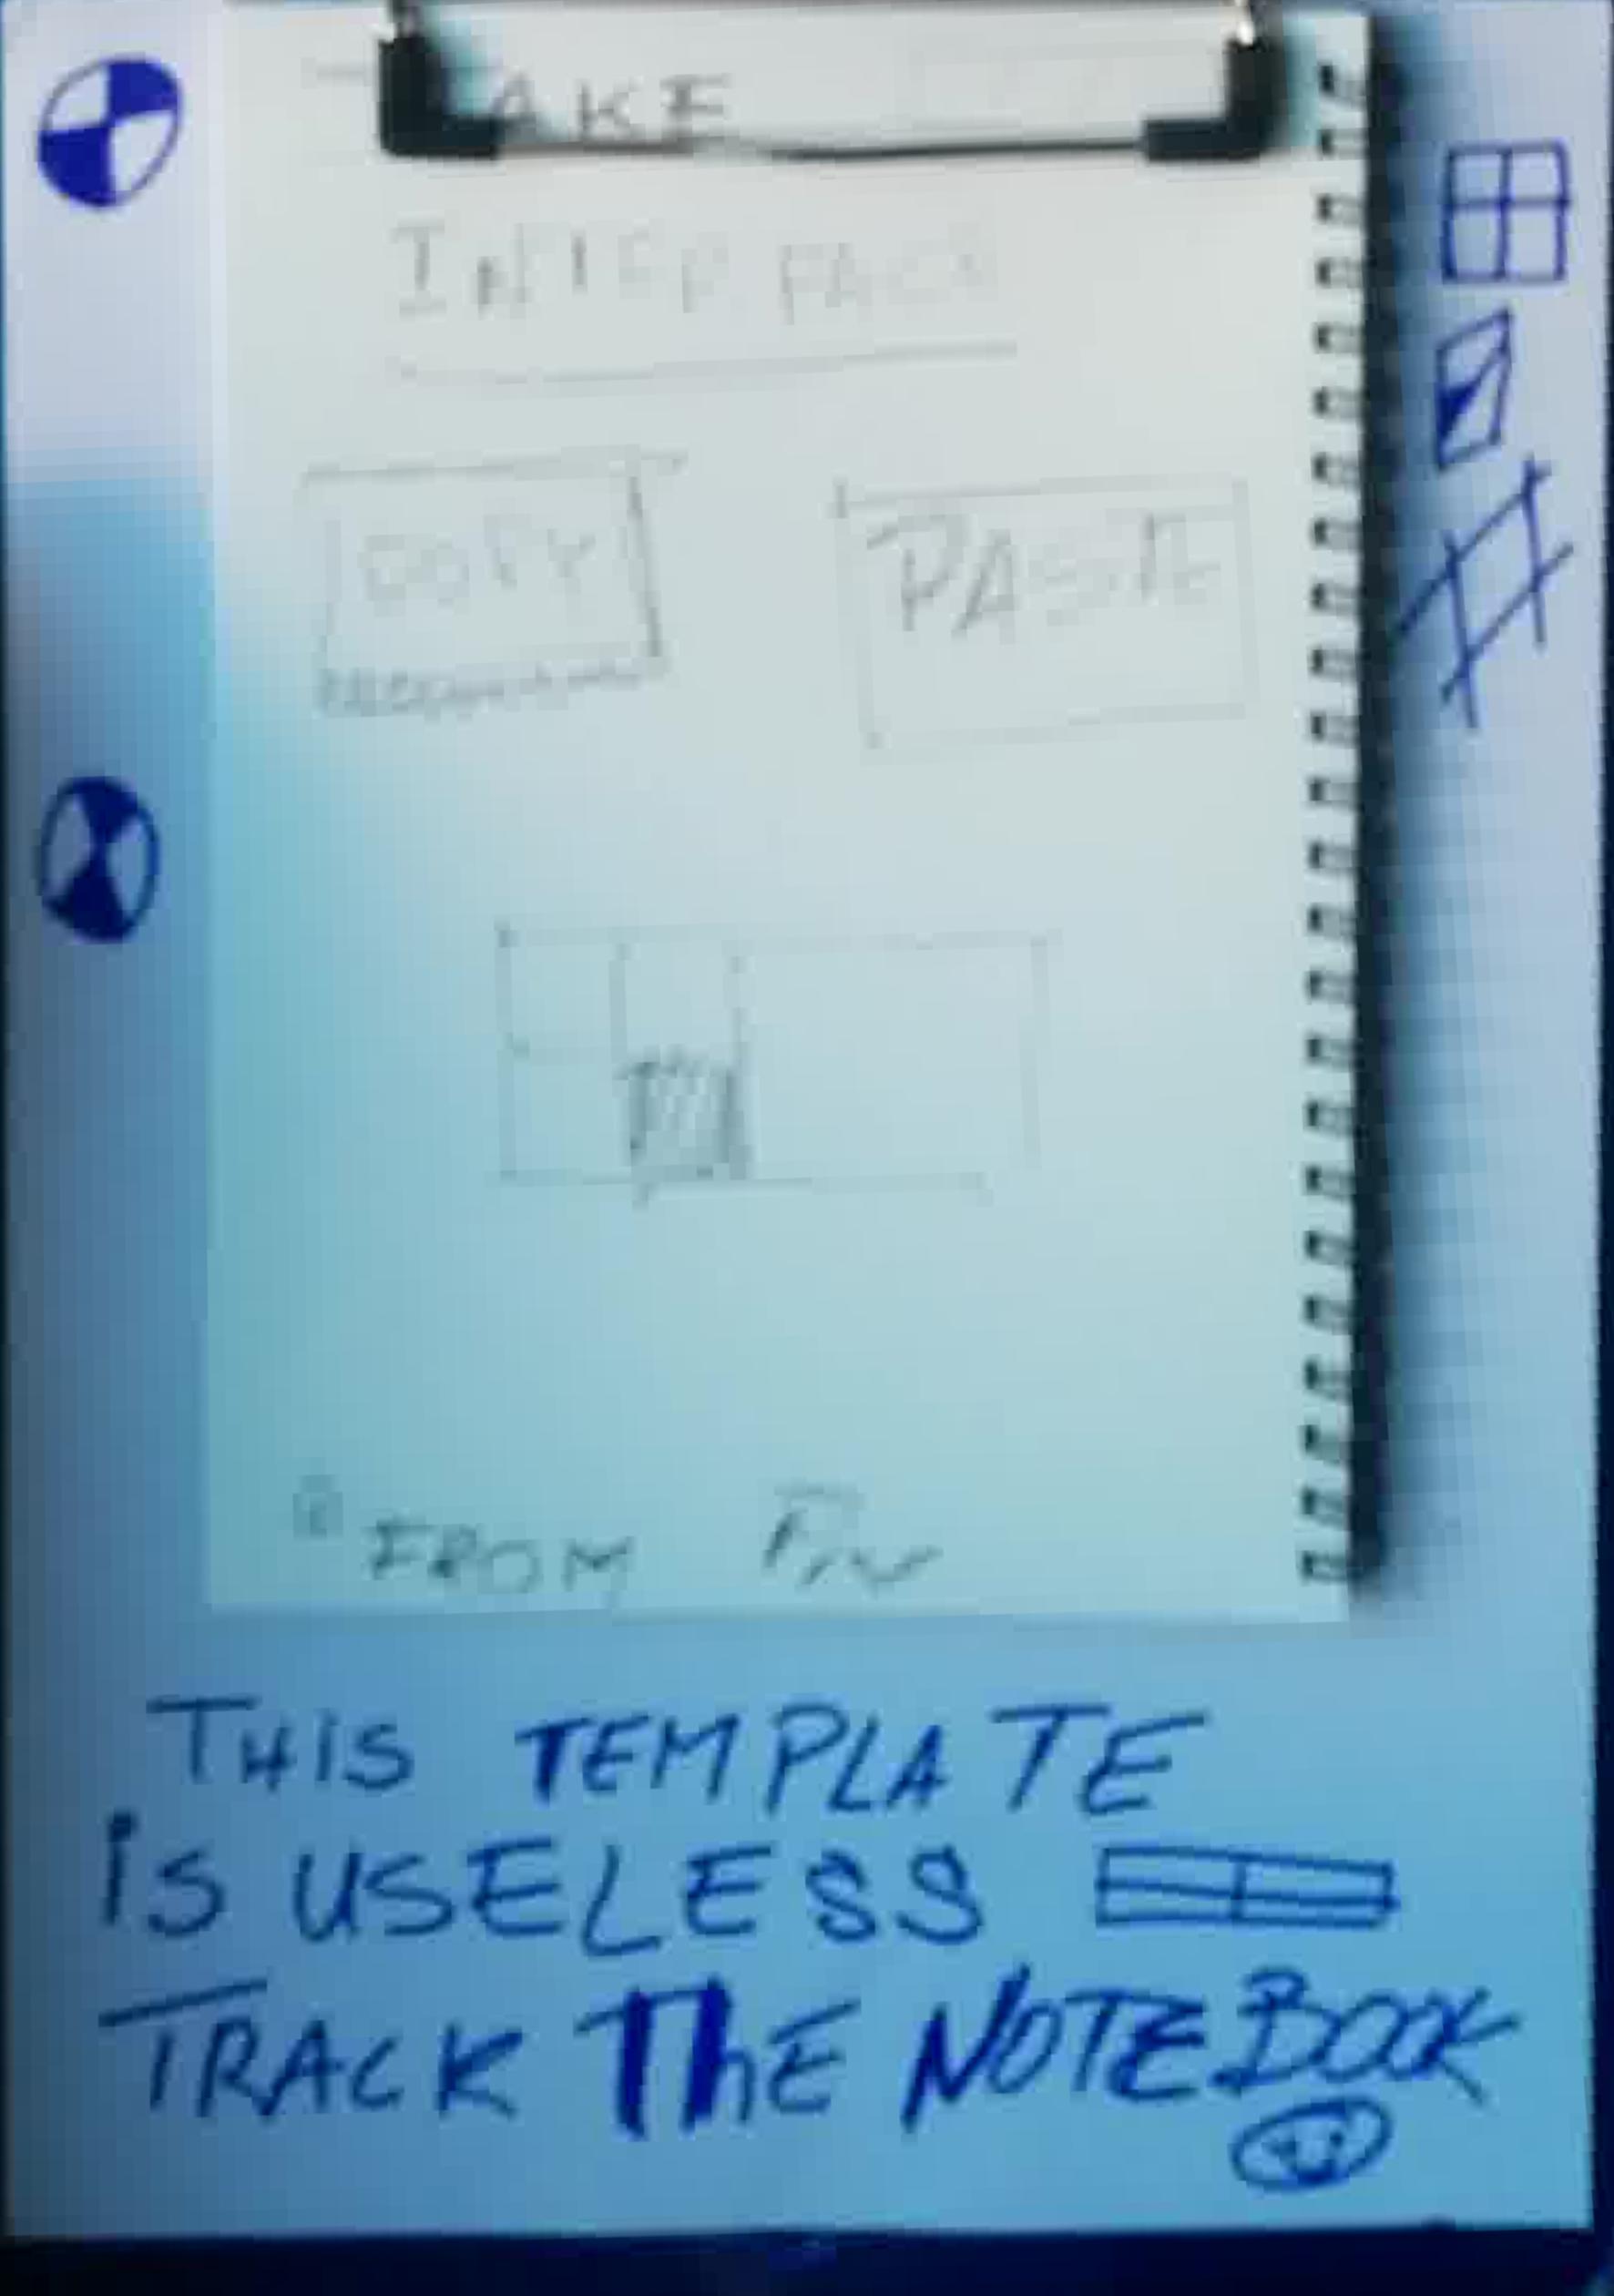 INTERFACE
COPY
PASTE
FROM
THIS TEMPLATE
is USELESS
TRACK ThE NOTEBOOK